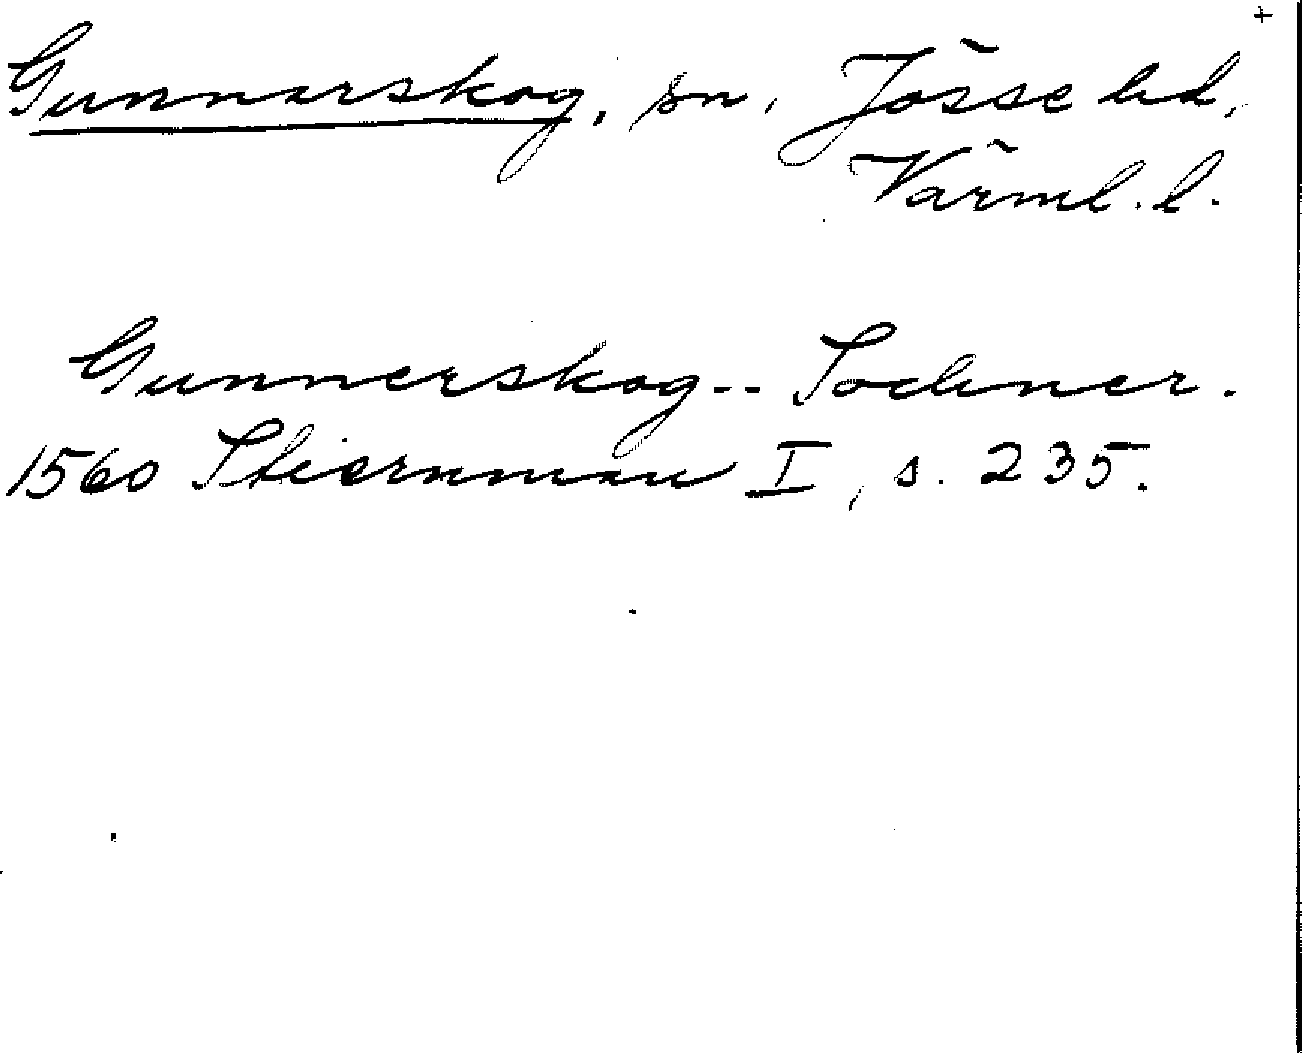 +
Gunnarskog, sn, Jösse hd,
Värml. l.
Gunnerskog -- Sochner.
1560 Stiernman I, s. 235.